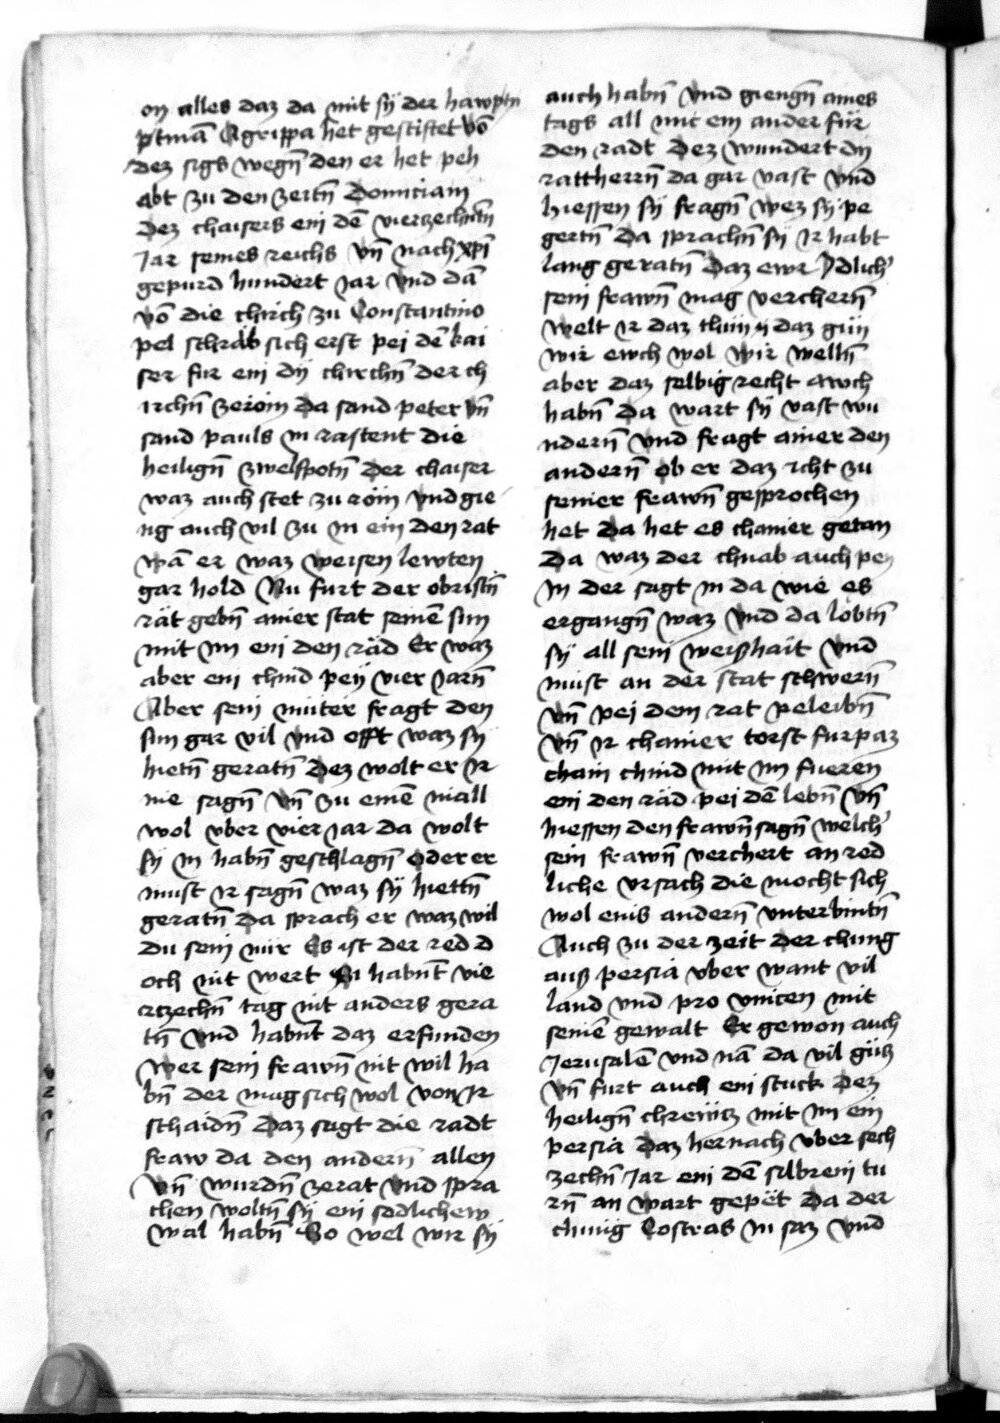 on alles daz da mit sÿ der hawptn
ptmā Agrippa het gestiftet vō
dez sigs wegn̄ den er het peh
abt zu den zeitn̄ Domiciani
dez chaisers ein dē vierzechn̄tn̄
Jar seines reichs vn̄ nach xp̄i
gepurd hundert jar vnd dā
vō die chirch zu Constantino
pel schraib sich erst pei dē kai
ser fur ein dÿ chirchn̄ der ch
irchn̄ ze röm da sand peter vn̄
sand pauls in rastent die
heilign̄ zwelfpotn̄ der chaiser
waz auch stet zu röm vnd gie
ng auch vil zu in ein den rat
wā er waz weisen lewten
gar hold Nu furt der obristn̄
rät gebn̄ ainer stat seinē sun
mit im ein den räd Er waz
aber ein chind peÿ vier jarn̄
Aber sein muter fragt den
sun gar vil vnd offt waz sÿ
hietn̄ geratn̄ dez wolt er ir
nie sagn̄ vn̄ zu einē mall
wol vber vier jar da wolt
sÿ in habn̄ geschlagn̄ oder er
must ir sagn̄ waz sÿ hiettn̄
geratn̄ da sprach er waz wil
du sein mir Es ist der red d
och nit wert Si habn̄t vie
rzechn̄ tag nit anders gera
tn̄ vnd habnt daz erfunden
wer sein frawn̄ nit wil ha
bn̄ der mag sich wol von ir
schaidn̄ daz sagt die radt
fraw da den andern̄ allen
vn̄ wurdn̄ ze rat vnd spra
chen woltn̄ sÿ ein sodlichew
wal habn̄ So wel wir sÿ
auch habn̄ vnd giengn̄ aines
tags all mit ein ander für
den radt Dez wundert dÿ
rattherrn̄ da gar vast vnd
hiessen sÿ fragn̄ wez sÿ pe
gertn̄ Da sprachn̄ sÿ ir habt
lang geratn̄ daz ewr ydlicher
sein frawn̄ mag verchern̄
welt ir daz thün daz gün
wir ewch wol wir welln̄
aber daz selbig recht awch
habn̄ Da wart sÿ vast wu
ndern̄ vnd fragt ainer den
andern̄ ob er daz icht zu
seiner frawn̄ gesprochen
het da het es chainer getan
Da waz der chnab auch pey
in der sagt in da wie es
ergangn̄ waz vnd da lobtn̄
sÿ all sein weiszhait vnd
must an der stat schwern̄
vn̄ pei dem rat peleibn̄
vn̄ ir chainer torst furpaz
chain chind mit im fueren
ein den räd pei dē lebn̄ vn̄
hiessen den frawn̄ sagn̄ welcher
sein frawn̄ verchert an red
liche vrsach die mocht sich
wol eins andern̄ vnterbintn̄
Auch zu der zeit der chung
ausz persia vber want vil
land vnd pro vincen mit
seinē gewalt Er gewon auch
Jerusalē vnd nā da vil gütz
vn̄ furt auch ein stuck dez
heilign̄ chrewtz mit im ein
persia daz hernach vber sech
zechn̄ Jar ein dē silbrein tu
rn̄ an wart gepët da der
chunig Costras in saz vnd